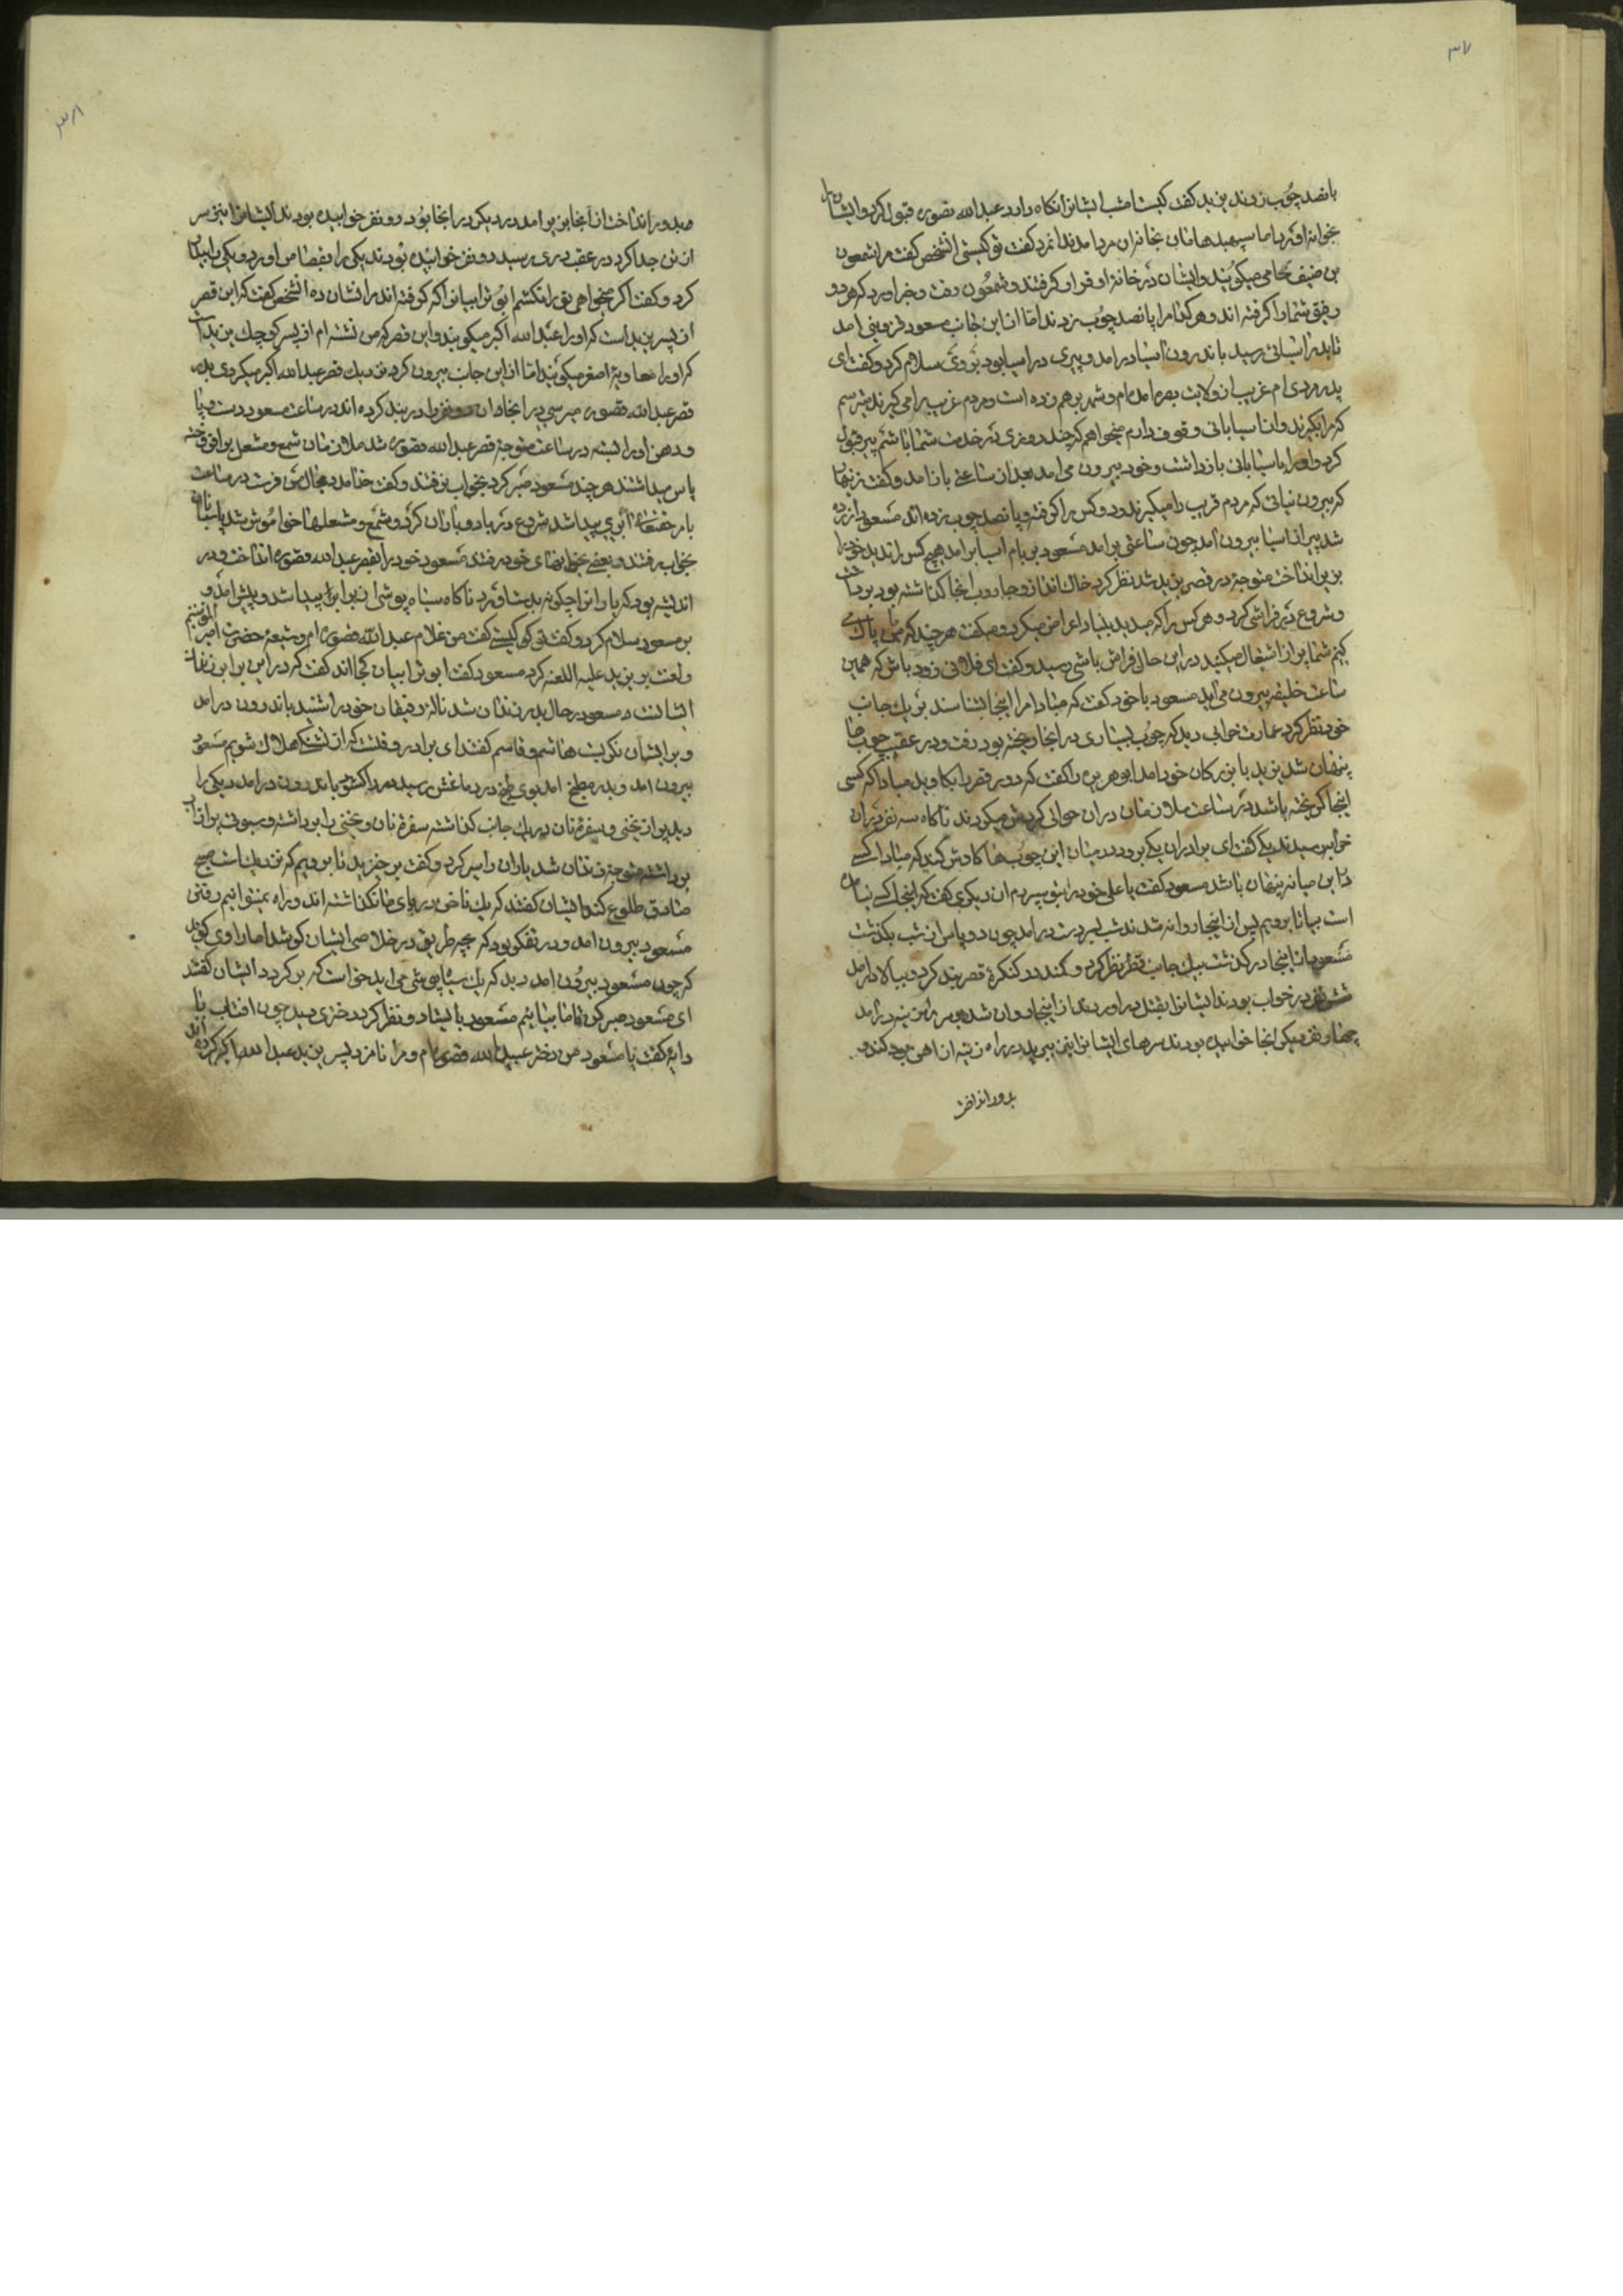 ۳۷
پانصد چوب زدند یزید گفت کیست امشب ایشانرا نگاه دارد عبدالله مقصوره قبول کرد و ایشانرا
بخانه آورد اما سپهبد هامان بخانه ان مرد آمدند انمرد گفت تو کیستی انشخص گفت مرا شمعون
بن ضیف میگویند و ایشان در خانه او قرار گرفتند و شمعون رفت و خبر آورد که هر دو
رفیق شما را گرفته اند و هر کدام را پانصد چوب زدند اما از این جانب مسعود قزوینی آمد
تا بدر آسیائی رسید باندرون آسیا درآمد و پیری در آسیا بود بر وی سلام کرد و گفت ای
پدر مردی ام غریب از ولایت بصره آمده ام و شهر برهم زده است و مردم غریب را می گیرند میترسم
که مرا بگیرند و از آسیابانی وقوف دارم میخواهم که چند روزی در خدمت شما باشم پیر قبول
کرد و او را بآسیابانی بازداشت و خود بیرون می آمد بعد از ساعتی باز آمد و گفت زینهار
که بیرون نیائی که مردم غریب را میگیرند و دو کس را گرفته و پانصد چوب زده اند مسعود آزرده
شد پیر از آسیا بیرون آمد چون ساعتی برآمد مسعود بر بام آسیا برآمد هیچ کس را ندید خود را
بزیر انداخت متوجه در قصر یزید شد نظر کرد خاک انداز و جاروب آنجا گذاشته بود برداشت
و شروع در فراشی کرد و هر کس را که میدید بنیاد اعراض میکرد و میگفت هر چند که من پاک
کنم شما پر از اشغال میکنید در این حال فراش باشی رسید و گفت ای فلانی زود باش که همین
ساعت خلیفه بیرون می آید مسعود با خود گفت که مبادا مرا اینجا بشناسند بر یک جانب
خود نظر کرد عمارت خرابی دید که چوب بسیاری در آنجا ریخته بود رفت و در عقب چوب ها
پنهان شد یزید با بزرکان خود آمد ابوهریره را گفت که دور قصر را بکاوید مبادا که کسی
اینجا گریخته باشد در ساعت ملازمان در ان حوالی گردش میکردند ناگاه سه نفر در ان
خرابه رسیدند یکی گفت ای برادران یکی برود در میان این چوب ها کاوش کنید که مبادا کسی
در این میانه پنهان باشد مسعود گفت یا علی خود را بتو سپردم ان دیگری گفت که اینجا کسی نیامده
است بیائید تا برویم پس از اینجا روانه شدند شب بسر دست درآمد چون دو پاس از شب بگذشت
مسعود از اینجا درگذشت بیک جانب قصر نظر کرد و کمند در کنگره قصر بند کرد و ببالا درآمد
شش نفر در خواب بودند ایشانرا بقتل درآورد بعد از اینجا روان شده بر سر زینه درآمد
چهار نفر دیگر آنجا خوابیده بودند سرهای ایشانرا نیز ببرید در راه زینه از اهن بود کند و
بدور انداخت
۳۸
بدور انداخت از آنجا بزیر آمد در دیگر در آنجا بود دو نفر خوابیده بودند ایشانرا نیز سر
از تن جدا کرد در عقب دری رسید دو نفر خوابیده بودند یکی را بقصاص آورد و یکی را بیدار
کرد و گفت اگر میخواهی تو را نکشم ابو ترابیانی را که گرفته اند مرا نشان ده انشخص گفت که این قصر
از پسر یزید است که او را عبدالله اکبر میگویند و این قصر که من نشسته ام از پسر کوچک یزید است
که او را معاویه اصغر میگویند اما از این جانب بیرون گرد نزدیک قصر عبدالله اکبر میگردی بدر
قصر عبدالله مقصوره میرسی در آنجا ان دو نفر را در بند کرده اند در ساعت مسعود دست و پا
و دهن او را بسته در ساعت متوجه قصر عبدالله مقصوره شد ملازمان شمع و مشعل برافروخته
پاس میداشتند هر چند مسعود صبر کرد بخواب نرفتند و گفت خدا مدد بحال من فرست در ساعت
بامر حق تعالی ابری پیدا شد شروع در باد و باران کرد و شمع و مشعلها خاموش شد پاسبانان
بخواب رفتند و بعضی بخانهای خود رفتند مسعود خود را بقصر عبدالله مقصوره انداخت و در
اندیشه بود که یارانرا چگونه بدست آورد ناگاه سیاه پوشی از برابر پیدا شد و پیش آمد و
بر مسعود سلام کرد و گفت تو کیستی گفت من غلام عبدالله مقصوره ام و شیعه حضرت امیر المومنینم
و لعنت بر یزید علیه اللعنه کرد مسعود گفت ابو ترابیان کجا اند گفت که در این برابر زندان
ایشانست مسعود در حال بدر زندان شد ناله رفیقان خود را شنید باندرون درآمد
و بر ایشان نگریست هاشم و قاسم گفتند ای برادر وقتست که از تشنگی هلاک شویم مسعود
بیرون آمد و بدر مطبخ آمد بوی طبخ در دماغش رسید در را گشود باندرون درآمد دیگی را
دید پر از یخنی و سفره نان در یک جانب گذاشته سفره نان و یخنی را برداشته و سبوئی پر از آب
برداشته متوجه زندان شد یاران را سیر کرد و گفت برخیزید تا برویم که نزدیک است صبح
صادق طلوع کند ایشان گفتند که یک ناخن در پای ما نگذاشته اند و راه نمیتوانیم رفتن
مسعود بیرون آمد و در تفکر بود که بچه طریق در خلاصی ایشان کوشد اما راوی گوید
که چون مسعود بیرون آمد دید که یک سیاه پوشی می آید خواست که بر گردد ایشان گفتند
ای مسعود صبر کن تا ما بیائیم مسعود بایستاد و نظر کرد دختری دید چون افتاب با
دایه گفت یا مسعود من دختر عبدالله مقصوره ام و مرا نامزد پسر یزید عبدالله اکبر کرده اند